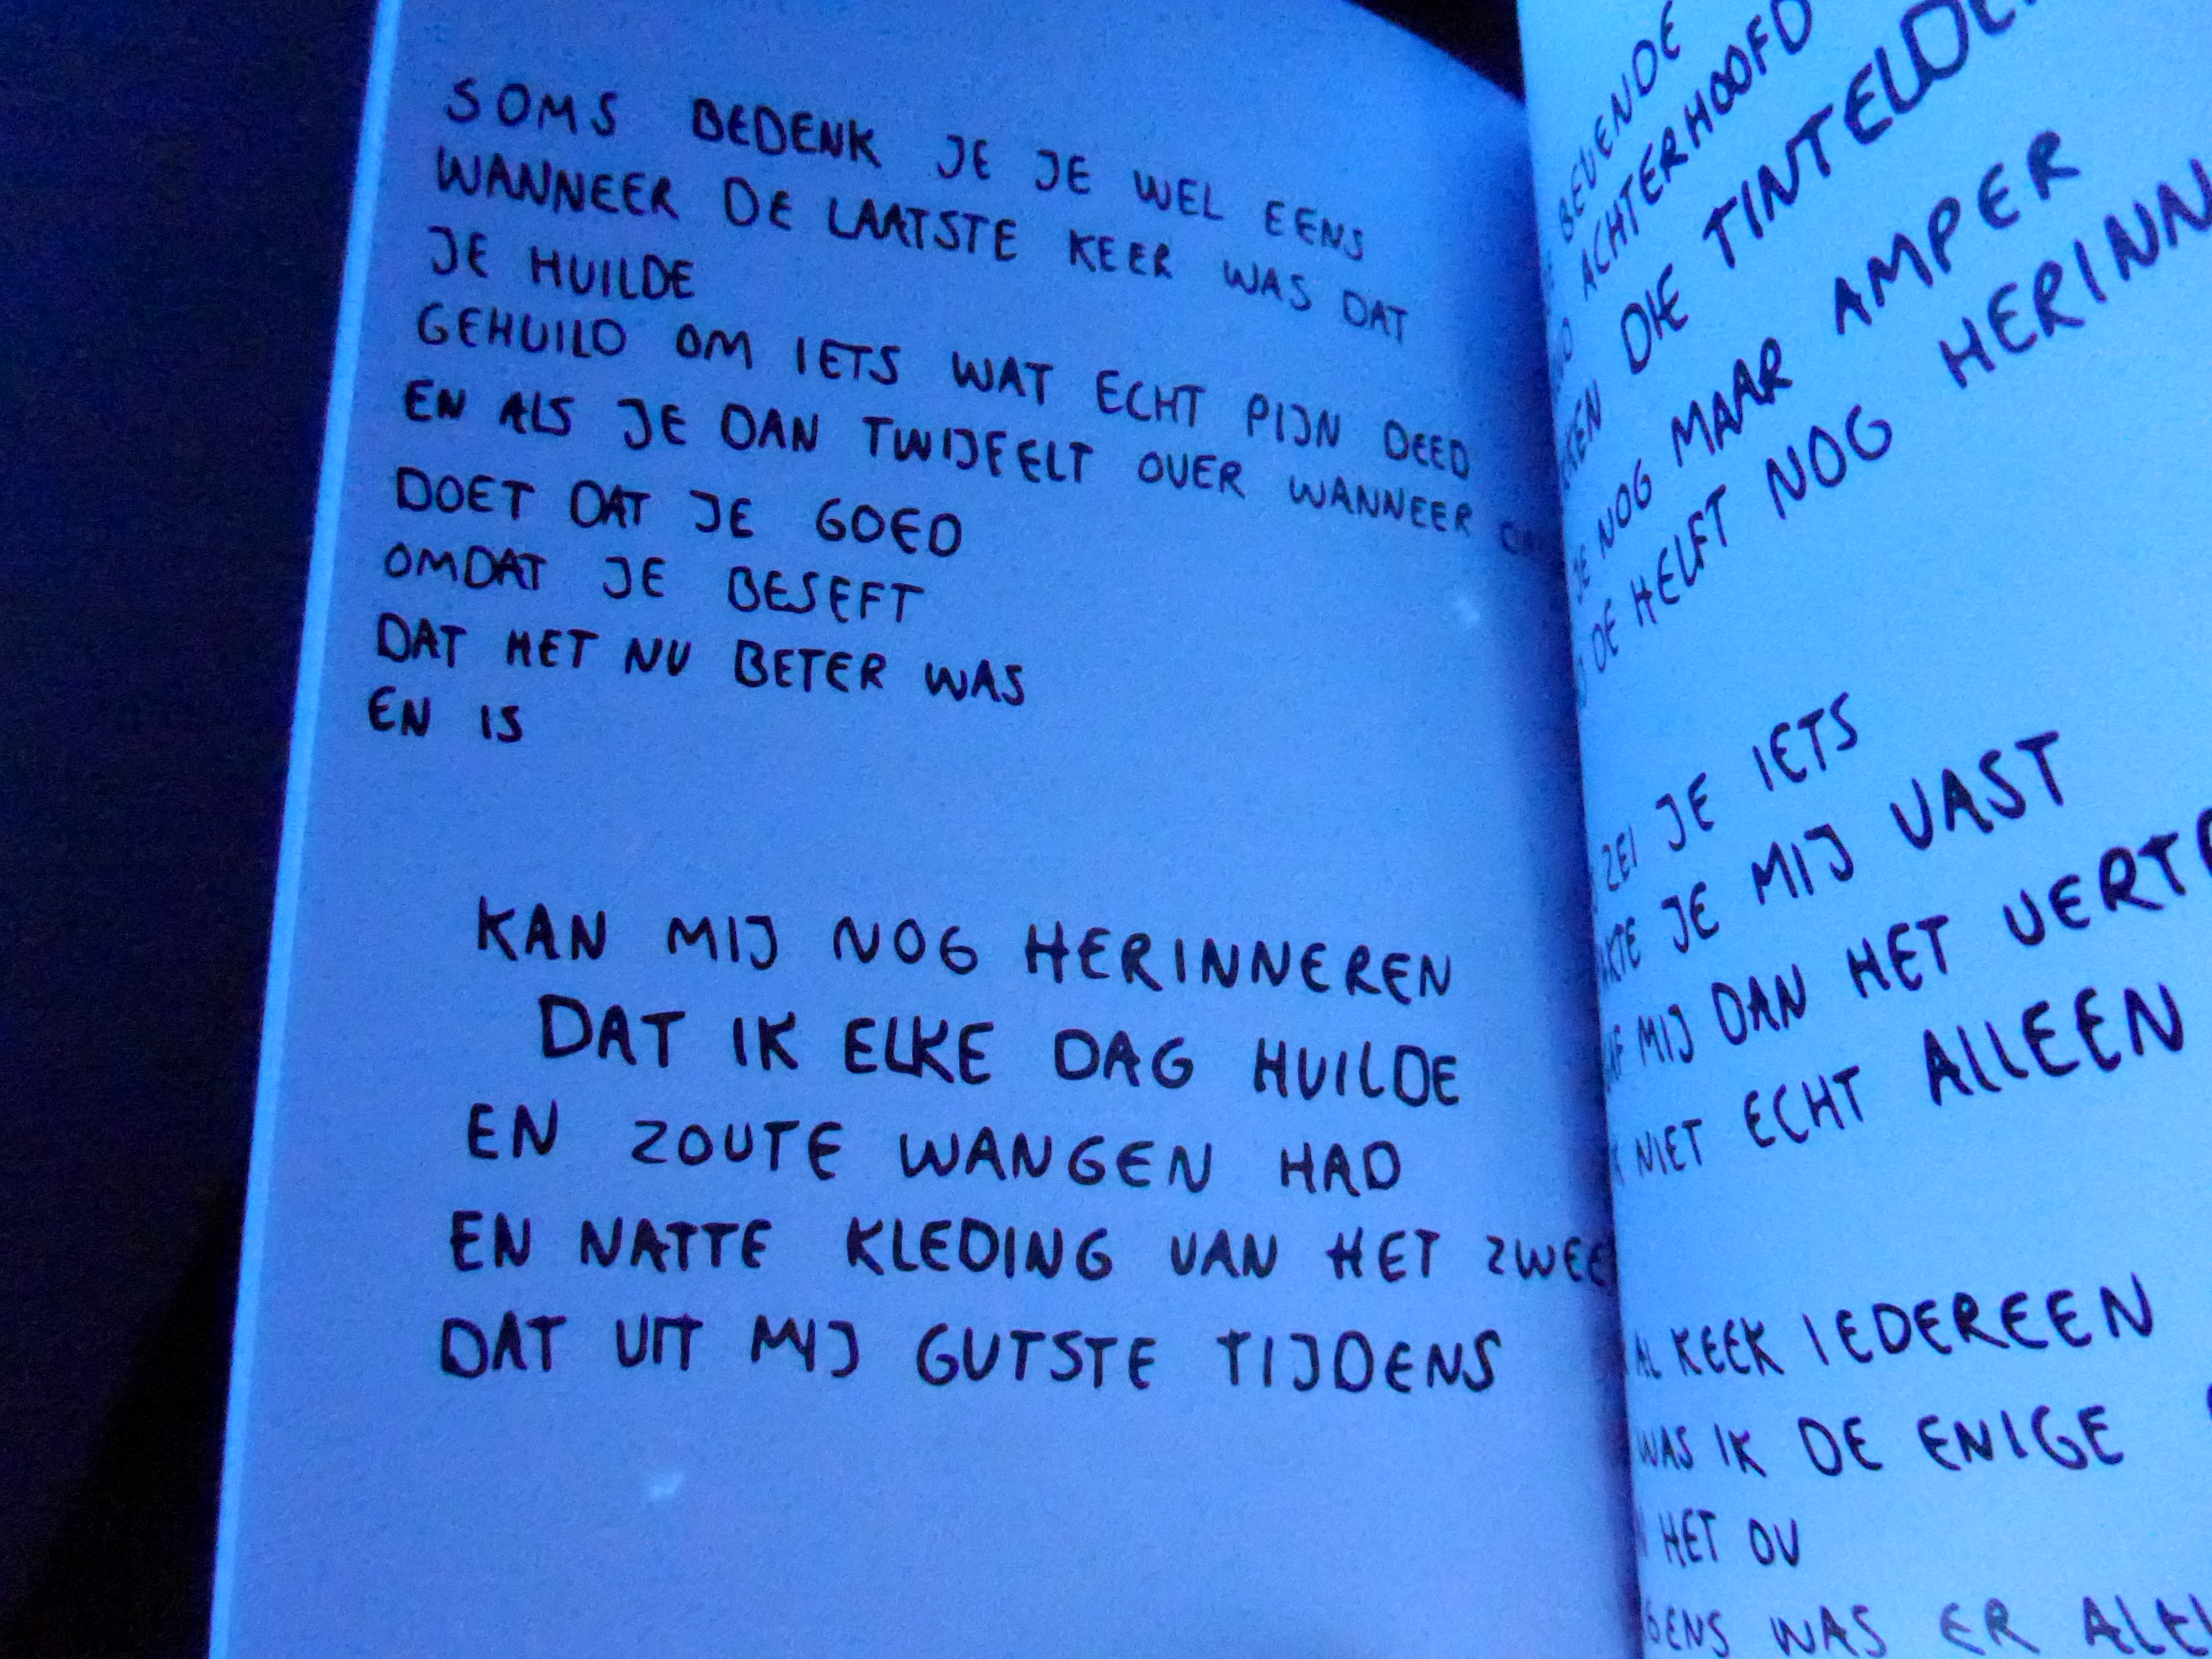 SOMS BEDENK JE JE WEL EENS
WANNEER DE LAATSTE KEER WAS DAT
JE HUILDE
GEHUILD OM IETS WAT ECHT PIJN DEED
EN ALS JE DAN TWIJFELT OVER WANNEER
DOET DAT JE GOED
OMDAT JE BESEFT
DAT HET NU BETER WAS
EN IS
KAN MIJ NOG HERINNEREN
DAT IK ELKE DAG HUILDE
EN ZOUTE WANGEN HAD
EN NATTE KLEDING VAN HET
DAT UIT MIJ GUTSTE TIJDENS
BEVENDE
ACHTERHOOFD
DIE
JE NOG MAAR AMPER
DE HELFT NOG
ZEI JE IETS
JE MIJ VAST
MIJ DAN HET
NIET ECHT ALLEEN
KEEK IEDEREEN
WAS IK DE ENIGE
HET OV
WAS ER